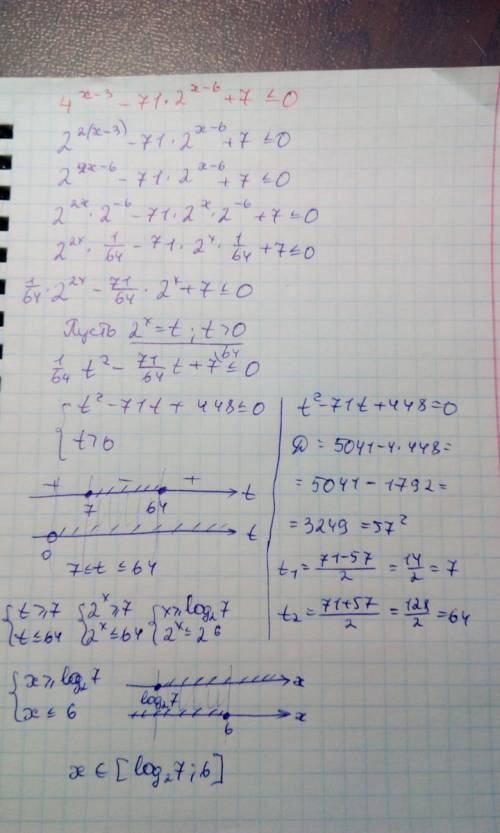 4^(x-3) - 71·2^(x-6) + 7 ≤ 0
2^(2(x-3)) - 71·2^(x-6) + 7 ≤ 0
2^(2x-6) - 71·2^(x-6) + 7 ≤ 0
2^(2x)·2^(-6) - 71·2^x·2^(-6) + 7 ≤ 0
2^(2x)·1/64 - 71·2^x·1/64 + 7 ≤ 0
1/64·2^(2x) - 71/64·2^x + 7 ≤ 0
Пусть 2^x = t; t > 0
1/64 t² - 71/64 t + 7^(\64) ≤ 0
{ t² - 71t + 448 ≤ 0
t > 0
+ - + t
7 64
0 t
7 ≤ t ≤ 64
t² - 71t + 448 = 0
D = 5041 - 4·448 =
= 5041 - 1792 =
= 3249 = 57²
t₁ = (71-57)/2 = 14/2 = 7
t₂ = (71+57)/2 = 128/2 = 64
{ t ≥ 7 { 2^x ≥ 7 { x ≥ log₂7
t ≤ 64 2^x ≤ 64 2^x ≤ 2^6
{ x ≥ log₂7
x ≤ 6
log₂7 x
6 x
x ∈ [log₂7; 6]